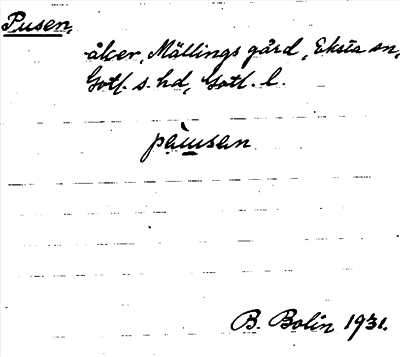 Pusen,
åker, Mällings gård, Eksta sn,
Gotl. s. hd, Gotl. l.
pàusan
B. Bolin 1931.